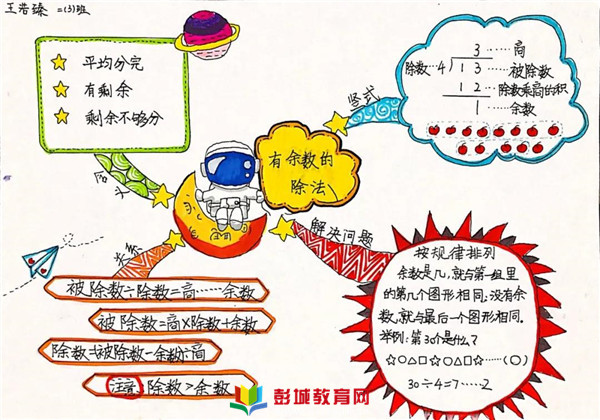 王浩臻 二(3)班
平均分完
有剩余
剩余不够分
含义
有余数的
除法
竖式
3……商
除数…4 1 3……被除数
1 2…除数乘商的积
1……余数
关系
被除数÷除数=商……余数
被除数=商×除数+余数
除数=被除数-余数÷商
注意:除数>余数
解决问题
按规律排列
余数是几,就与第一组里
的第几个图形相同;没有余
数,就与最后一个图形相同。
举例:第30个是什么?
☆○△□☆○△□☆……(○)
30÷4=7……2
彭城教育网